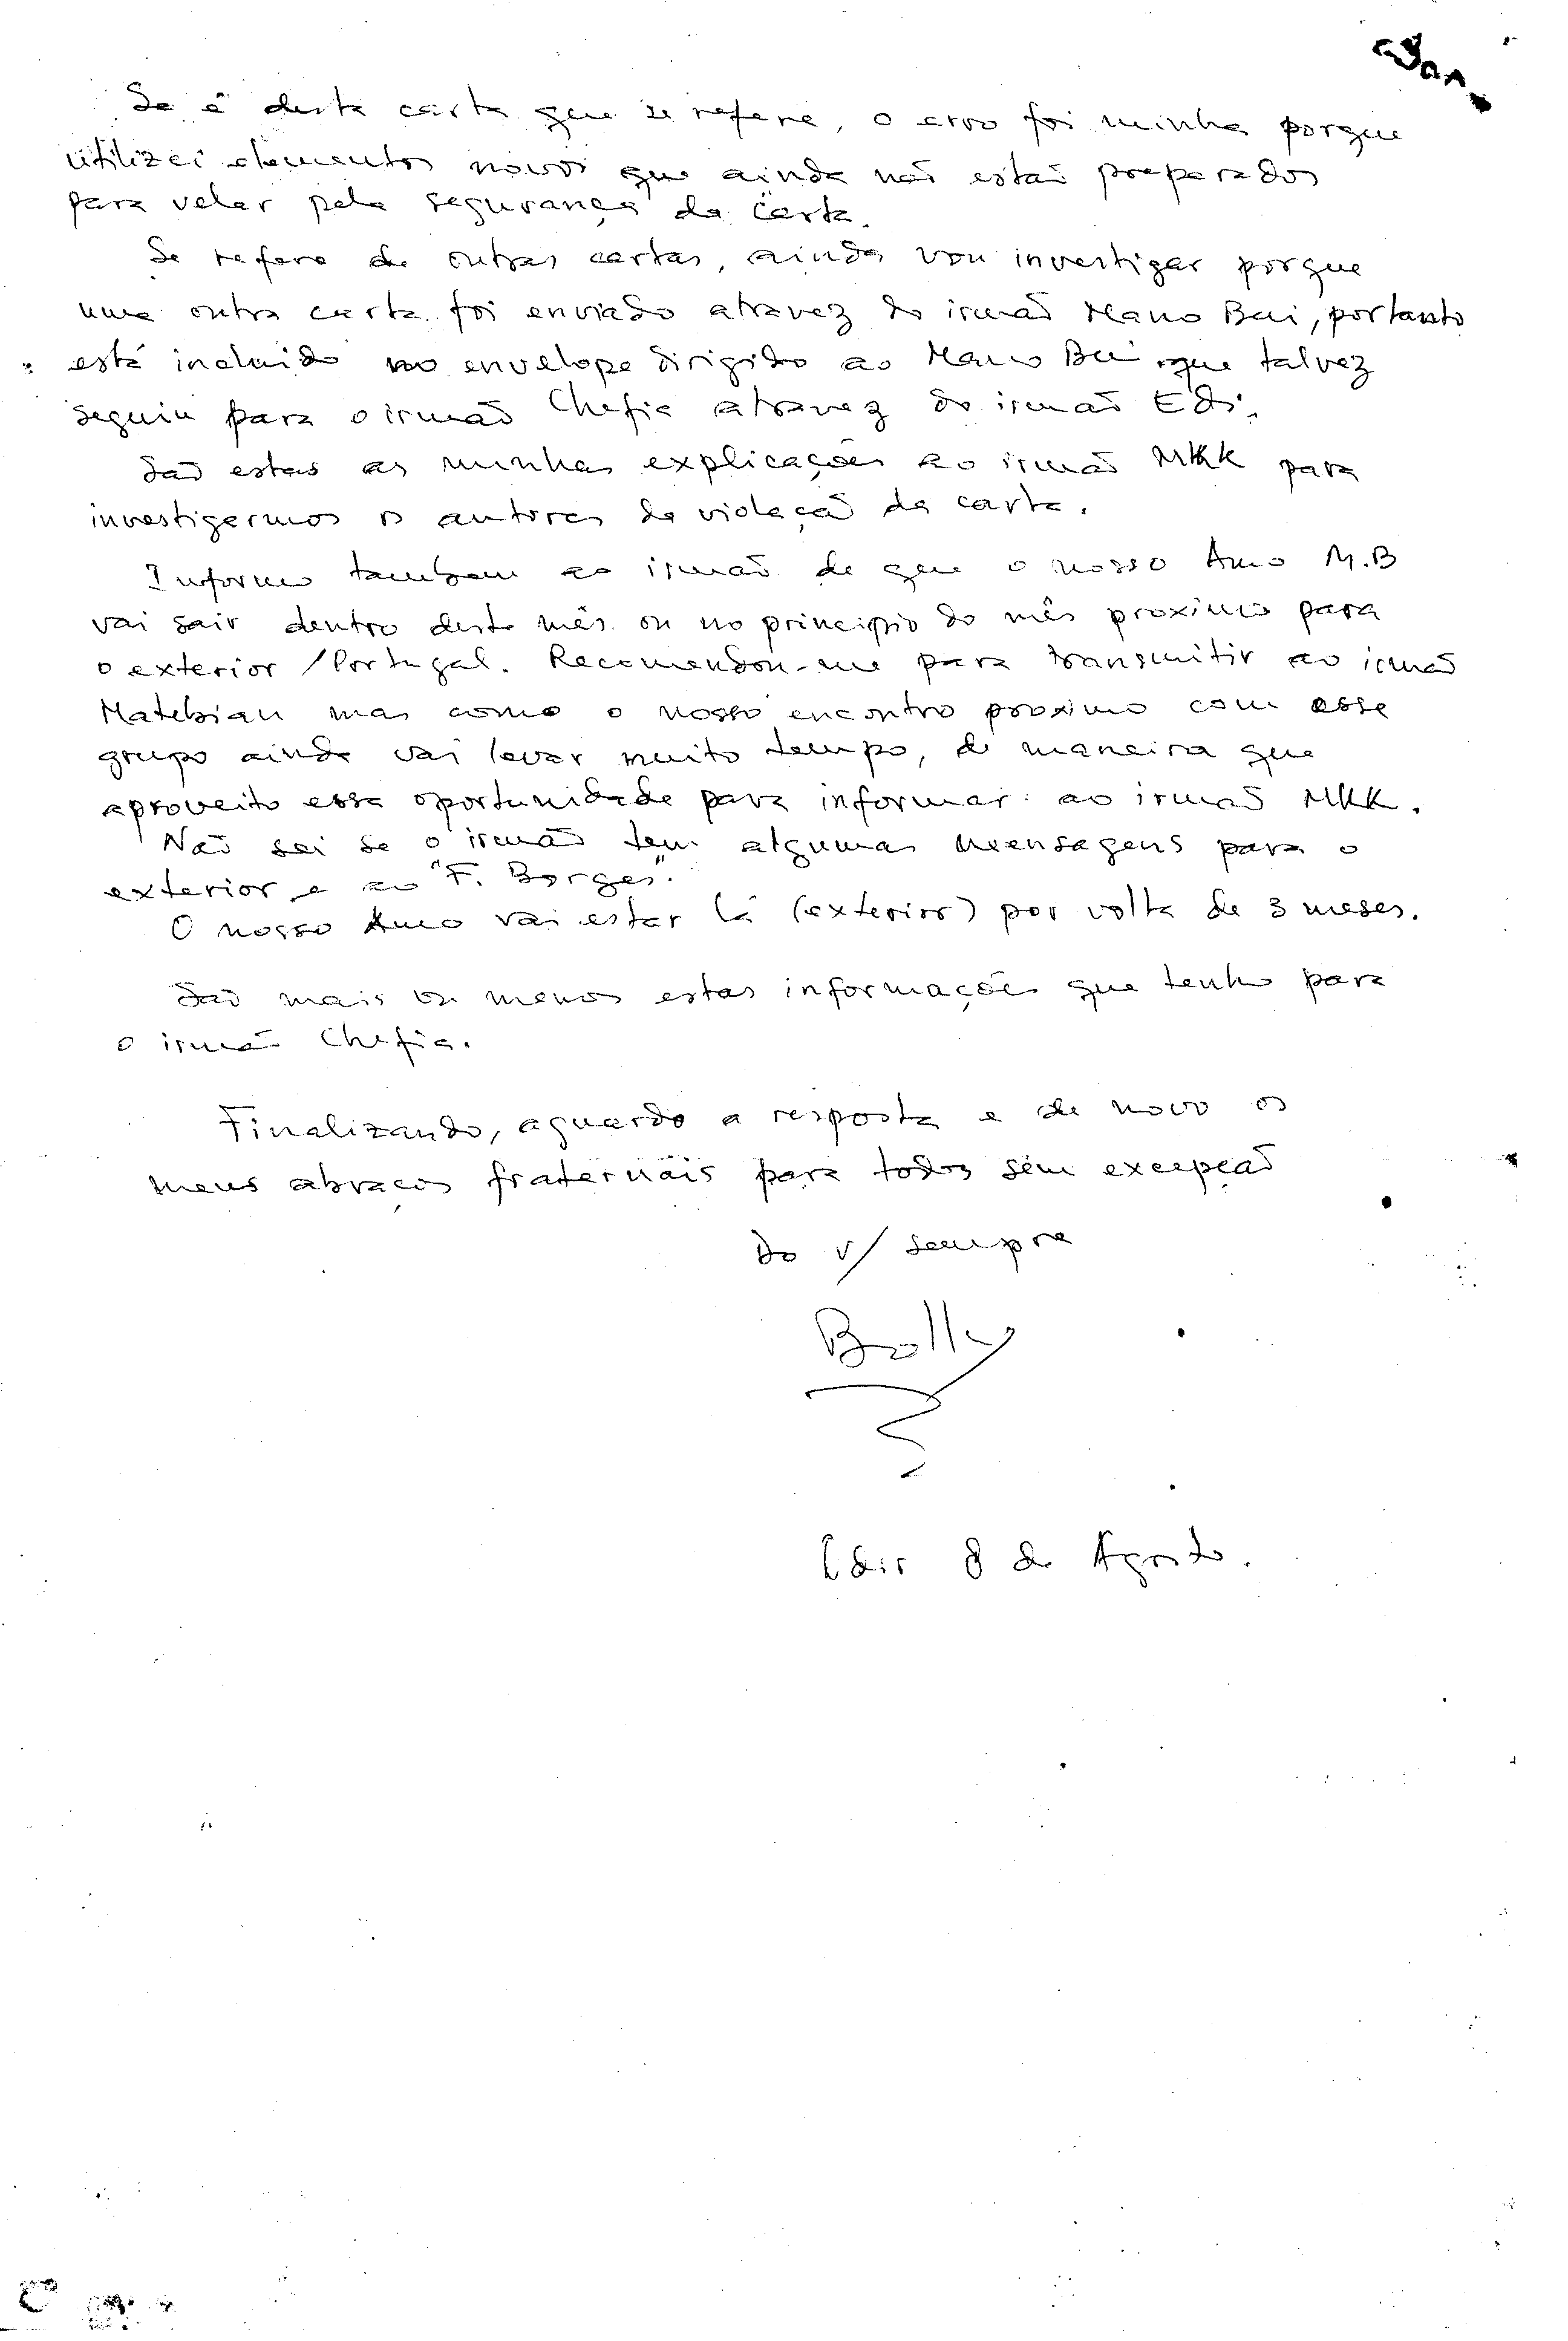 Se é desta carta que se refere, o erro foi minha porque
utilizei elementos novos que ainda não estão preparados
para velar pela segurança da carta.
Se refere de outras cartas, ainda vou investigar porque
uma outra carta foi enviado atravez do irmão Mano Bui, portanto
está incluido no envelope dirigido ao Mano Bui que talvez
seguiu para o irmão Chefia atravez do irmão Edi.
São estas as minhas explicações ao irmão MKK para
investigarmos os autores da violação da carta.
Informo tambem ao irmão de que o nosso Amo M.B
vai sair dentro deste mês ou no principio do mês proximo para
o exterior / Portugal. Recomendou-me para transmitir ao irmão
Matebian mas como o nosso encontro proximo com esse
grupo ainda vai levar muito tempo, de maneira que
aproveito essa oportunidade para informar ao irmão MKK.
Não sei se o irmão tem algumas mensagens para o
exterior e ao "F. Borges".
O nosso Amo vai estar lá (exterior) por volta de 3 meses.
São mais ou menos estas informações que tenho para
o irmão Chefia.
Finalizando, aguardo a resposta e de novo os
meus abraços fraternais para todos sem excepção
Do v/ sempre
Bolly
8 de Agosto.